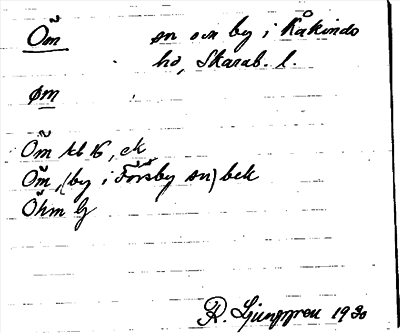 Öm sn och by i Kåkinds
hd, Skarab. l.
øm
Öm tb 16, ek
Öm, (by i Försby sn) bek
Öhm lg
R. Ljunggren 1930